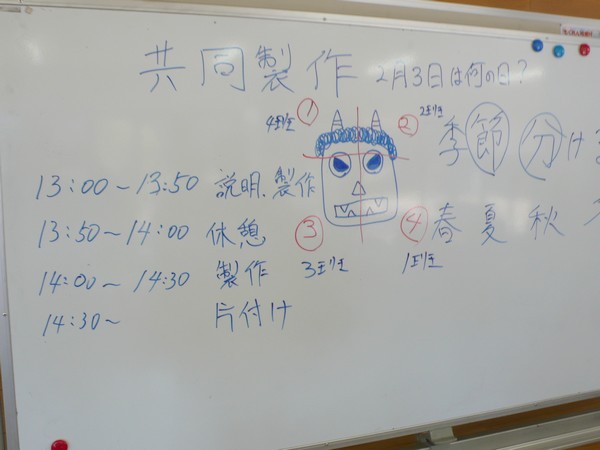 共同製作 2月3日は何の日?
① 4班
② 2班
季節分け
13:00~13:50 説明、製作
13:50~14:00 休憩
③ 3班
④ 1班
春夏秋
14:00~14:30 製作
14:30~ 片付け